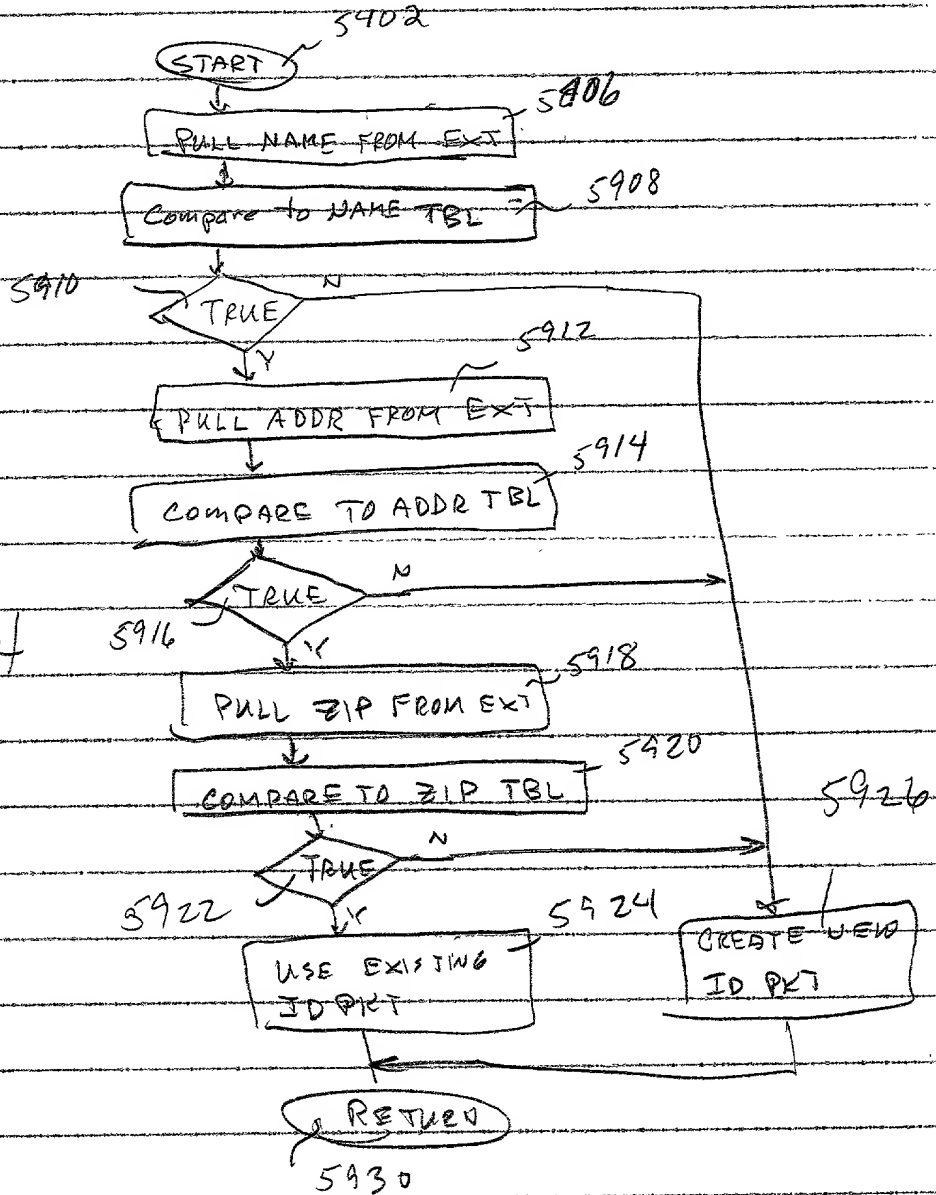 5902
START
5906
PULL NAME FROM EXT
5908
Compare to NAME TBL
5910
N
TRUE
Y
5912
PULL ADDR FROM EXT
5914
COMPARE TO ADDR TBL
N
TRUE
5916
Y
5918
PULL ZIP FROM EXT
5920
COMPARE TO ZIP TBL
5926
N
TRUE
5922
Y
5924
USE EXISTING
ID PKT
CREATE NEW
ID PKT
RETURN
5930